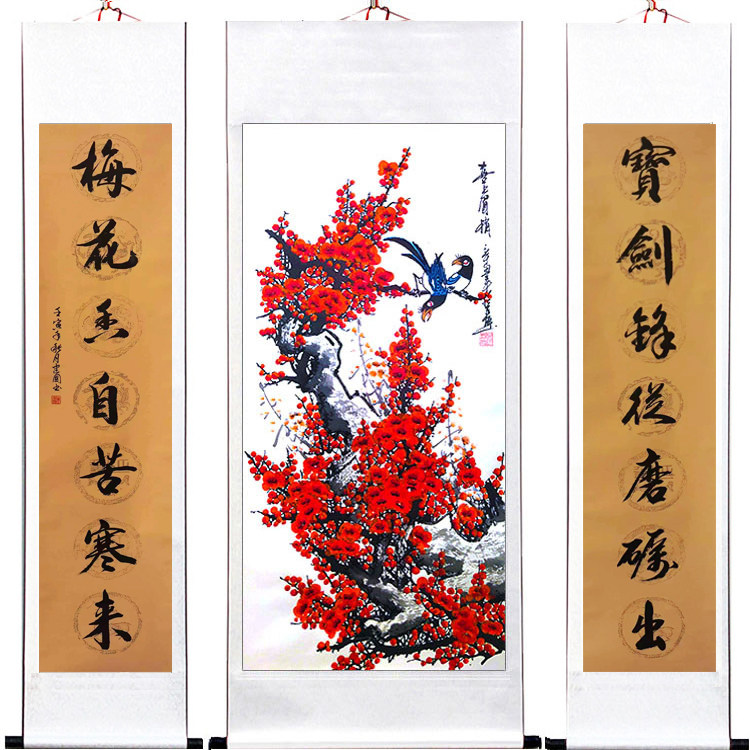 寶劍鋒從磨礪出
喜上眉梢
梅花香自苦寒来
壬寅年秋月